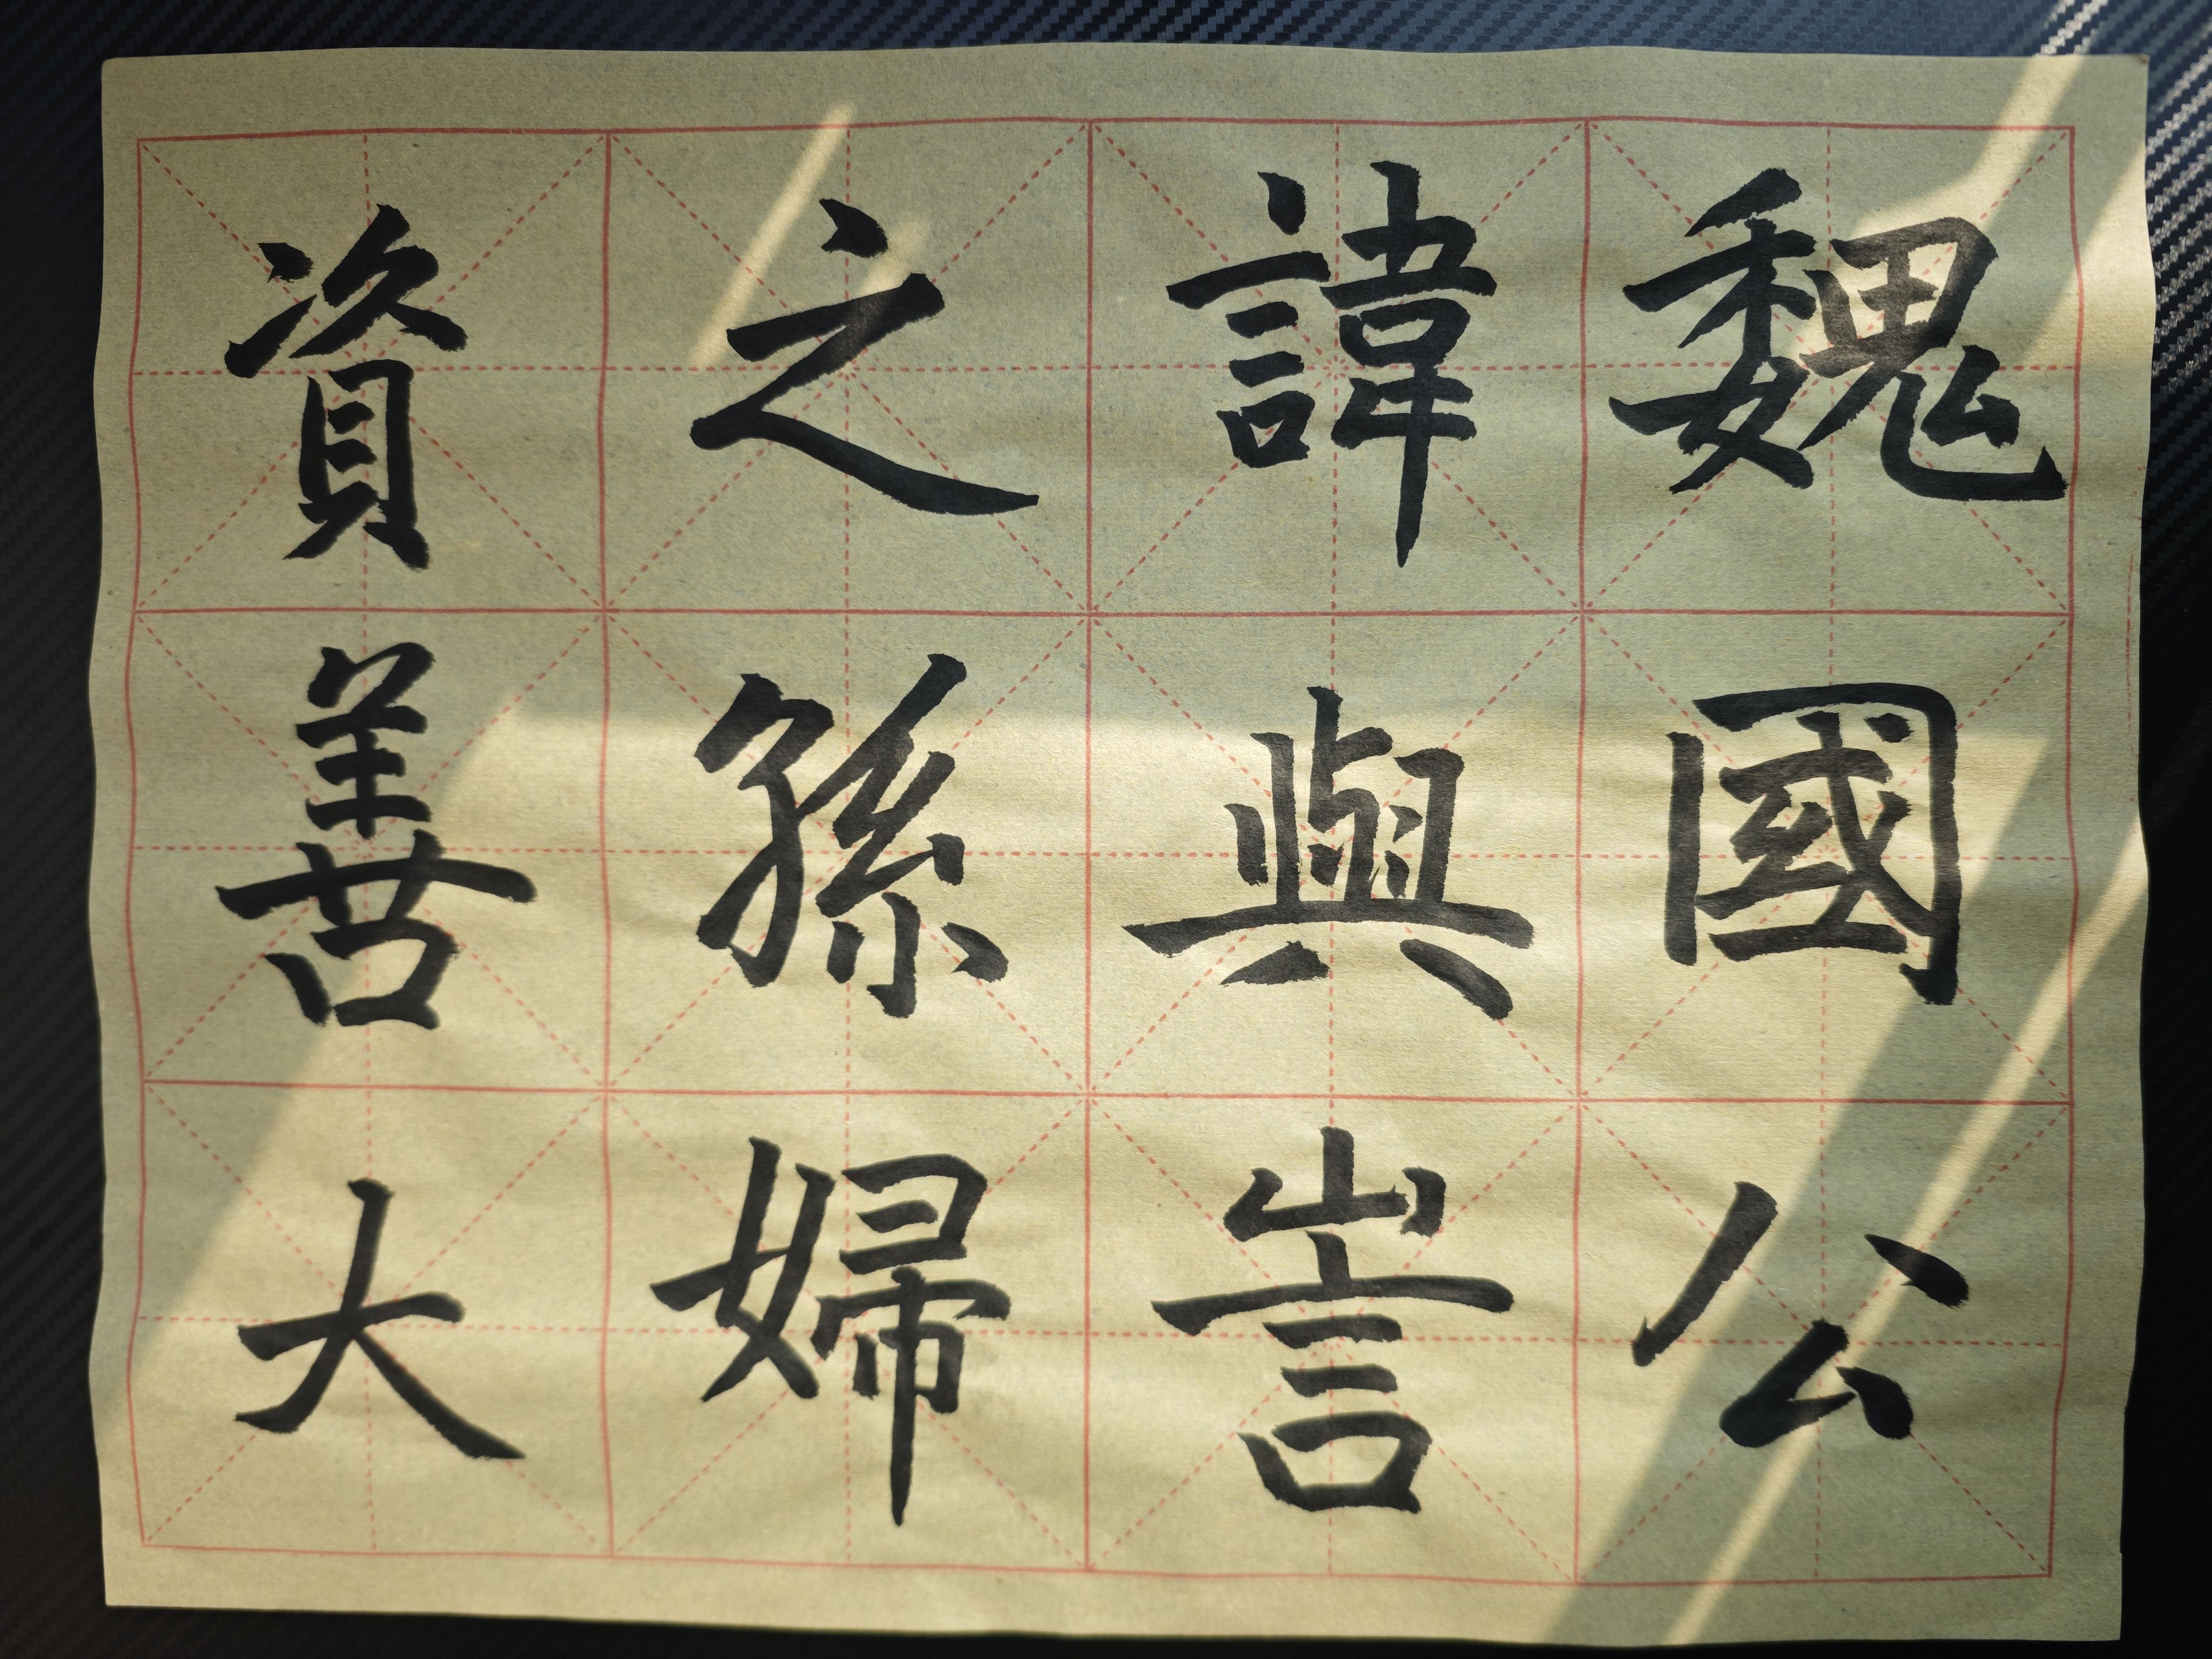 魏國公
諱與訔
之孫婦
資善大